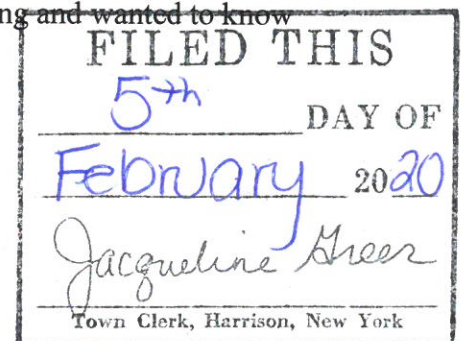 ng and wanted to know
FILED THIS
5th DAY OF
February 2020
Jacqueline Greer
Town Clerk, Harrison, New York